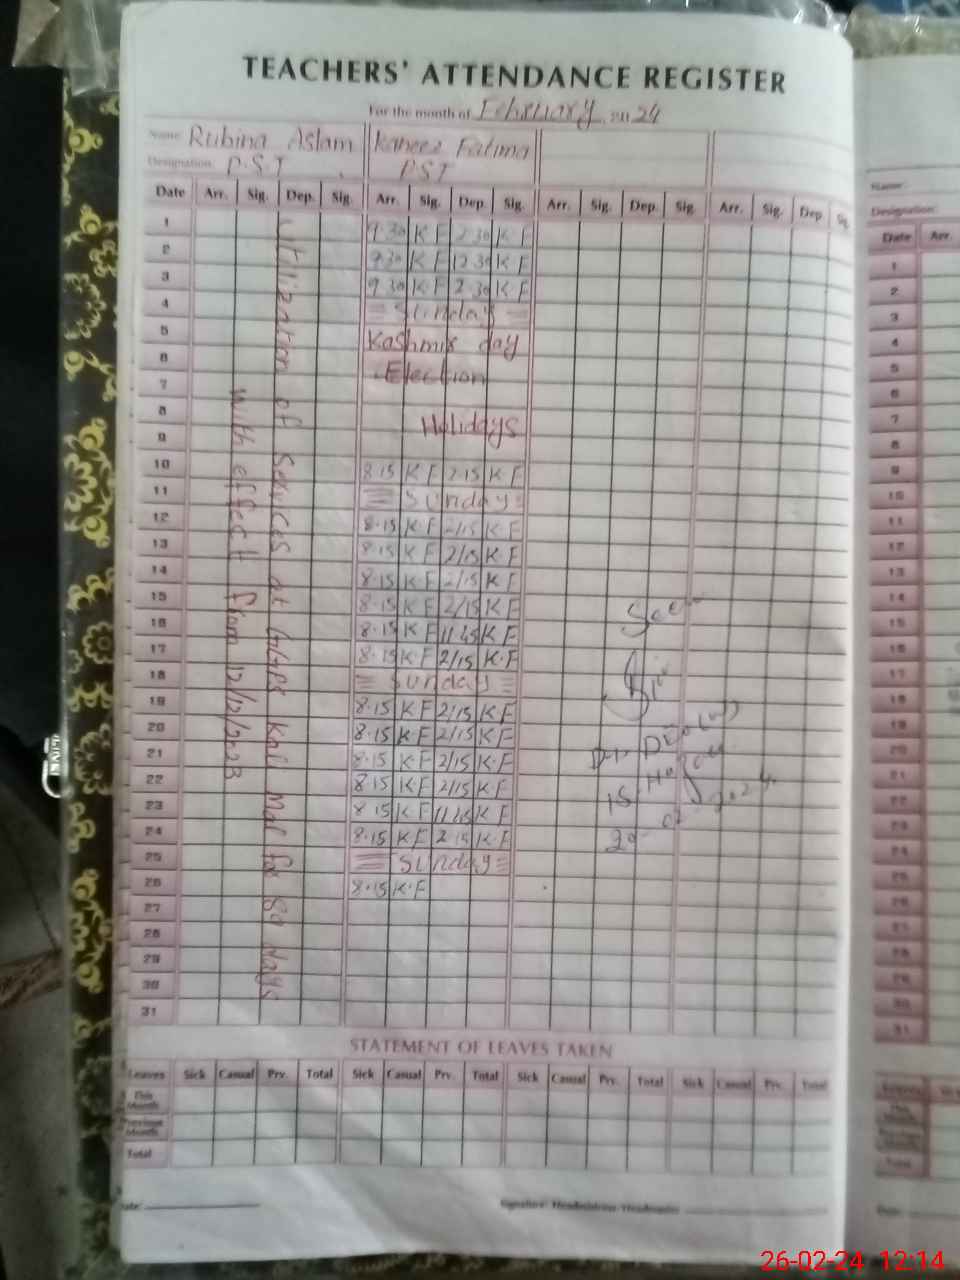 TEACHERS' ATTENDANCE REGISTER
For the month of February, 2024
Name Rubina Aslam Kaneez Fatima
Designation P.S.T PST
Date Arr. Sig. Dep. Sig. Arr. Sig. Dep. Sig. Arr. Sig. Dep. Sig. Arr. Sig. Dep. Sig.
Utilization of services at GGPS Kali Mal for 89 days
with effect from 12/12/2023
1 9.30 K F 2.30 K F
2 9.30 K F 12.30 K F
3 9.30 K F 2.30 K F
4 Sunday
5 Kashmir day
6 Election
7
8 Holidays
9
10 8.15 K F 2.15 K F
11 Sunday
12 8.15 K F 2/15 K F
13 8.15 K F 2/15 K F
14 8.15 K F 2/15 K F
15 8.15 K F 2/15 K F
16 8.15 K F 11.45 K F
17 8.15 K.F 2/15 K.F
18 Sunday
19 8.15 K F 2/15 K F
20 8.15 K F 2/15 K F
21 8.15 K.F 2/15 K F
22 8.15 K F 2/15 K F
23 8.15 K F 11.45 K F
24 8.15 K F 2.15 K F
25 Sunday
26 8.15 K.F
27
28
29
30
31
Seen
STATEMENT OF LEAVES TAKEN
Leaves Sick Casual Prv. Total Sick Casual Prv. Total Sick Casual Prv. Total Sick Casual Prv. Total
This Month
Previous Month
Total
Date: Signature: Headmistress/Headmaster
Name:
Designation:
Date Arr.
1
2
3
4
5
6
7
8
9
10
11
12
13
14
15
16
17
18
19
20
21
22
23
24
25
26
27
28
29
30
31
26-02-24 12:14